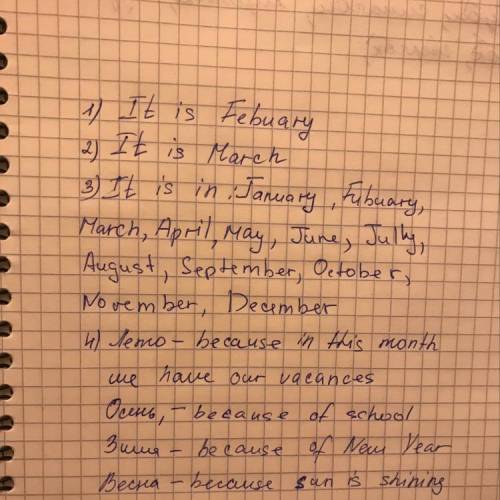 1) It is Febuary
2) It is March
3) It is in: January, Fubuary,
March, April, May, June, Jully,
August, September, October,
November, December
4) Лето - because in this month
we have our vacances
Осень, - because of school
Зима - because of New Year
Весна - because sun is shining